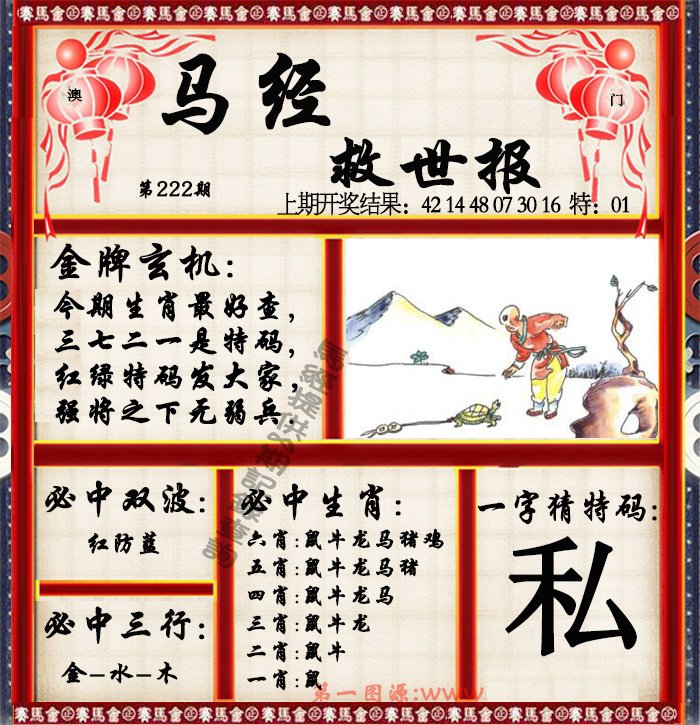 賽馬會㊣賽馬會㊣賽馬會㊣賽馬會㊣賽馬會㊣賽馬會㊣賽馬會
澳
门
马经
救世报
第222期
上期开奖结果：42 14 48 07 30 16 特：01
金牌玄机：
今期生肖最好查，
三七二一是特码，
红绿特码发大家，
强将之下无弱兵.
必中双波：
红防蓝
必中三行：
金-水-木
必中生肖：
六肖：鼠牛龙马猪鸡
五肖：鼠牛龙马猪
四肖：鼠牛龙马
三肖：鼠牛龙
二肖：鼠牛
一肖：鼠
一字猜特码：
私
第一图源：www